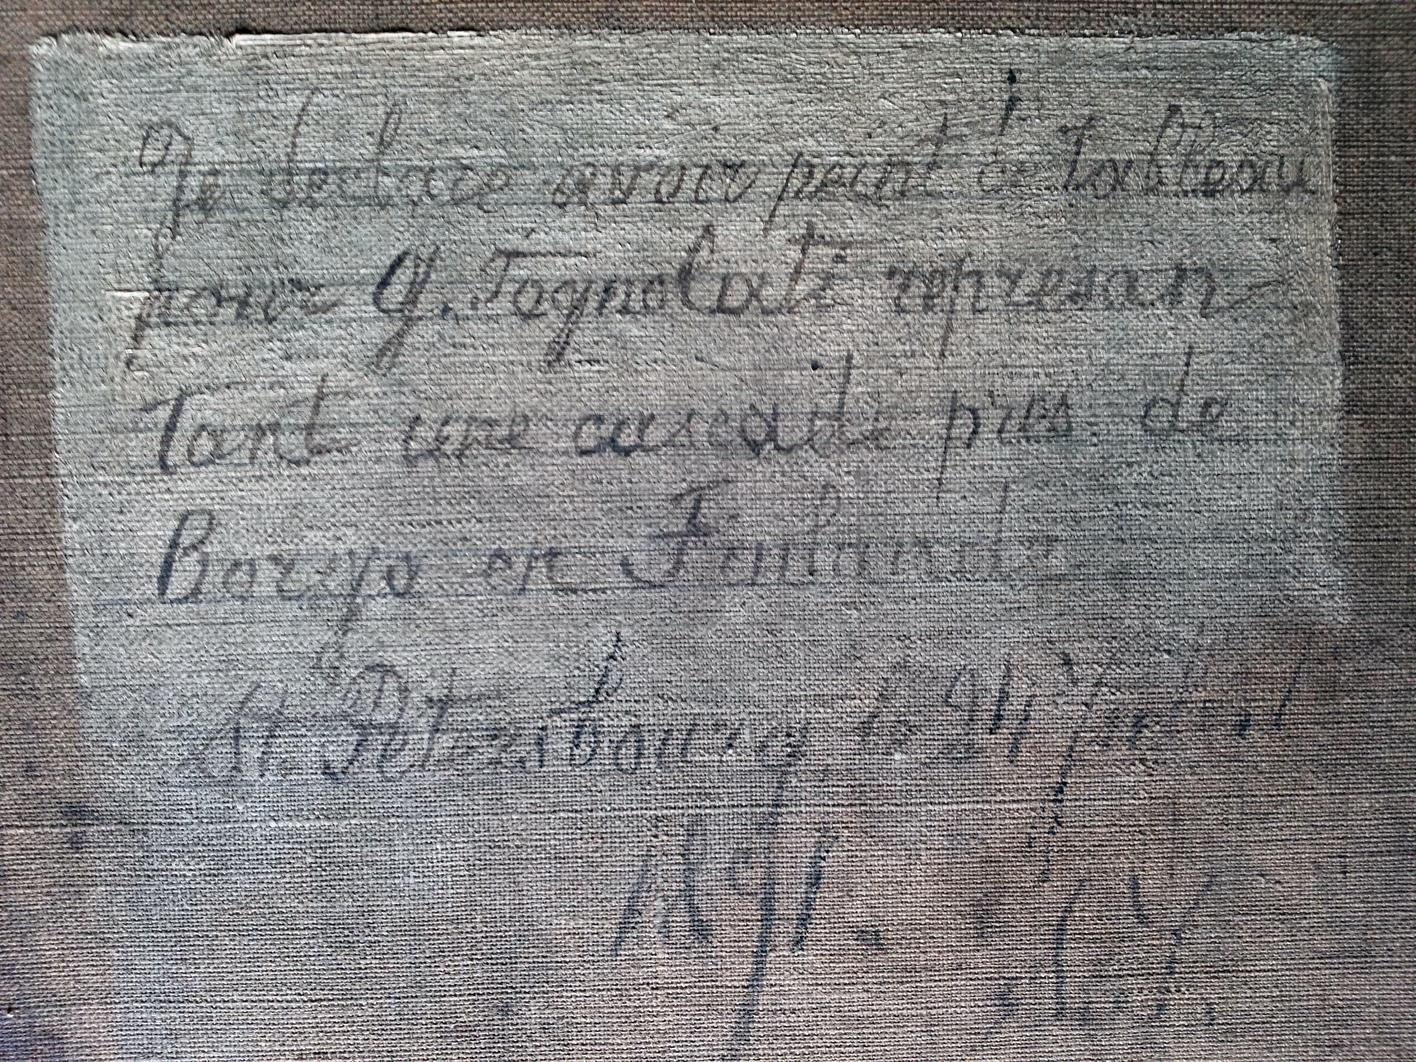 Je declare avoir peint ce tableau
pour G. Tognolati represan-
tant une cascade près de
Borgo en Finlande
St. Petersbourg, le 24